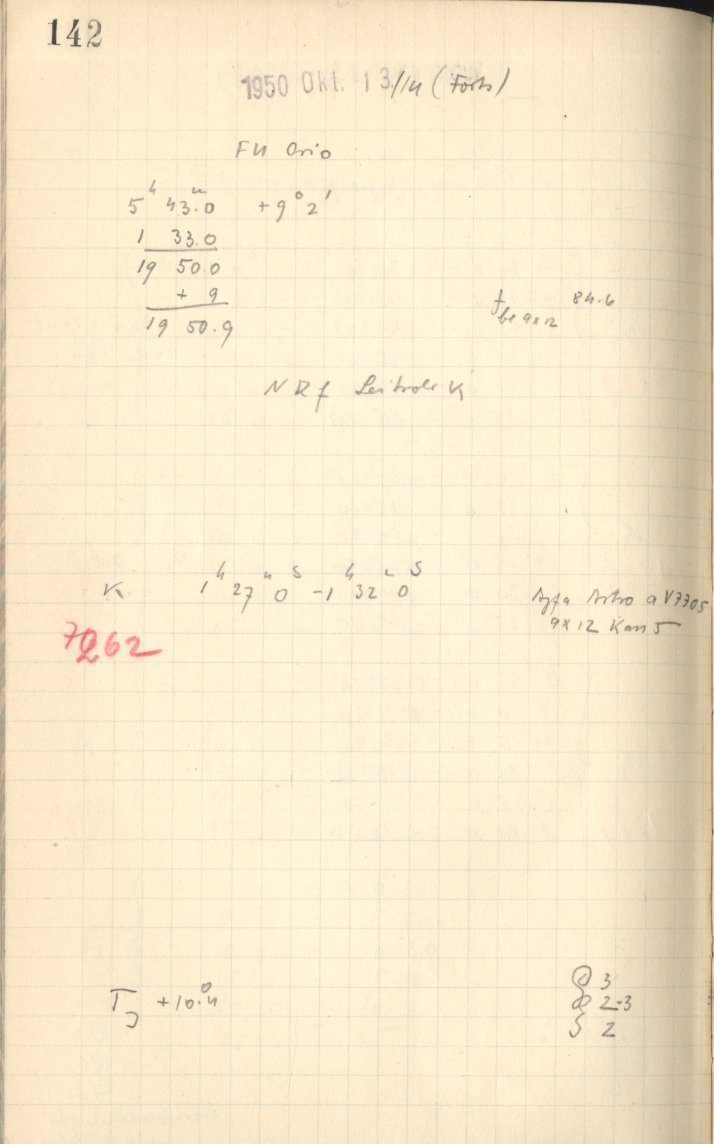 142
1950 Okt. 13/14 (Forts)
FU Orio
5ʰ 43ᵐ.0 +9° 2'
1 33.0
19 50.0
+ 9
19 50.9
f be 9x12 84.6
NRf
K 1ʰ 27ᵐ 0ˢ - 1ʰ 32ᵐ 0ˢ
Agfa Astro a V7705
9x12 Kass 5
7262
T +10°.4
3
2-3
S 2